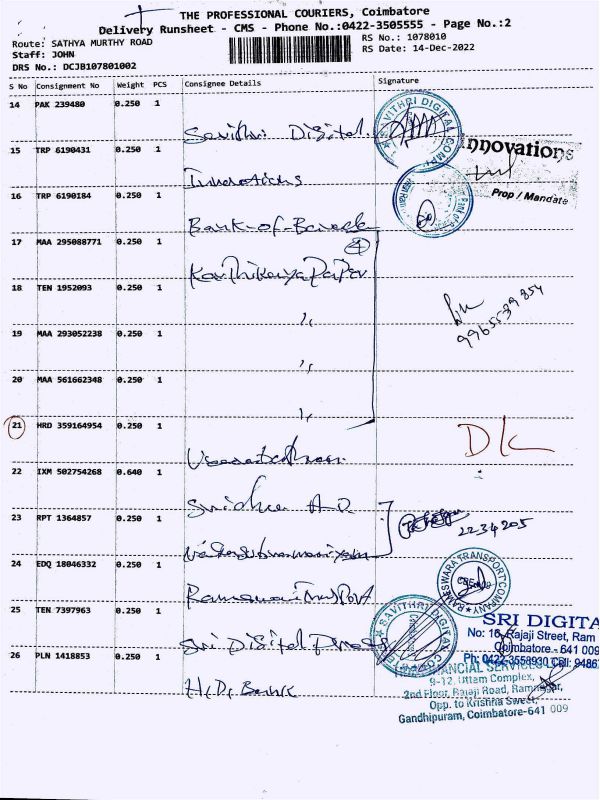 THE PROFESSIONAL COURIERS, Coimbatore
Delivery Runsheet - CMS - Phone No.:0422-3505555 - Page No.:2
Route: SATHYA MURTHY ROAD
RS No: 1078010
Staff: JOHN
RS Date: 14-Dec-2022
DRS No.: DCJB107801002
S No Consignment No Weight PCS Consignee Details Signature
14 PAK 239480 0.250 1
Savithri Digital
SAVITHRI DIGITAL COMP
15 TRP 6190431 0.250 1
Innovations
Innovations
Prop / Mandate
16 TRP 6190184 0.250 1
Bank-of-Baroda
17 MAA 295088771 0.250 1
4
Karthikeya Paper
18 TEN 1952093 0.250 1
,,
9965539854
19 MAA 293052238 0.250 1
,,
20 MAA 561662348 0.250 1
,,
21 HRD 359164954 0.250 1
DK
22 IXM 502754268 0.640 1
23 RPT 1364857 0.250 1
2234205
24 EDQ 18046332 0.250 1
RAMESWARA TRANSPORT COMPANY
25 TEN 7397963 0.250 1
Sri Digital Press
SAVITHRI DIGITAL COMP
SRI DIGITA
No: 16, Rajaji Street, Ram
Coimbatore - 641 009
Ph: 0422-3558930 Cell: 9486
26 PLN 1418853 0.250 1
H.D. Bank
FINANCIAL SERVICES
9-12, Uttam Complex,
2nd Floor, Rajaji Road, Ramnagar,
Opp. to Krishna Sweet,
Gandhipuram, Coimbatore-641 009